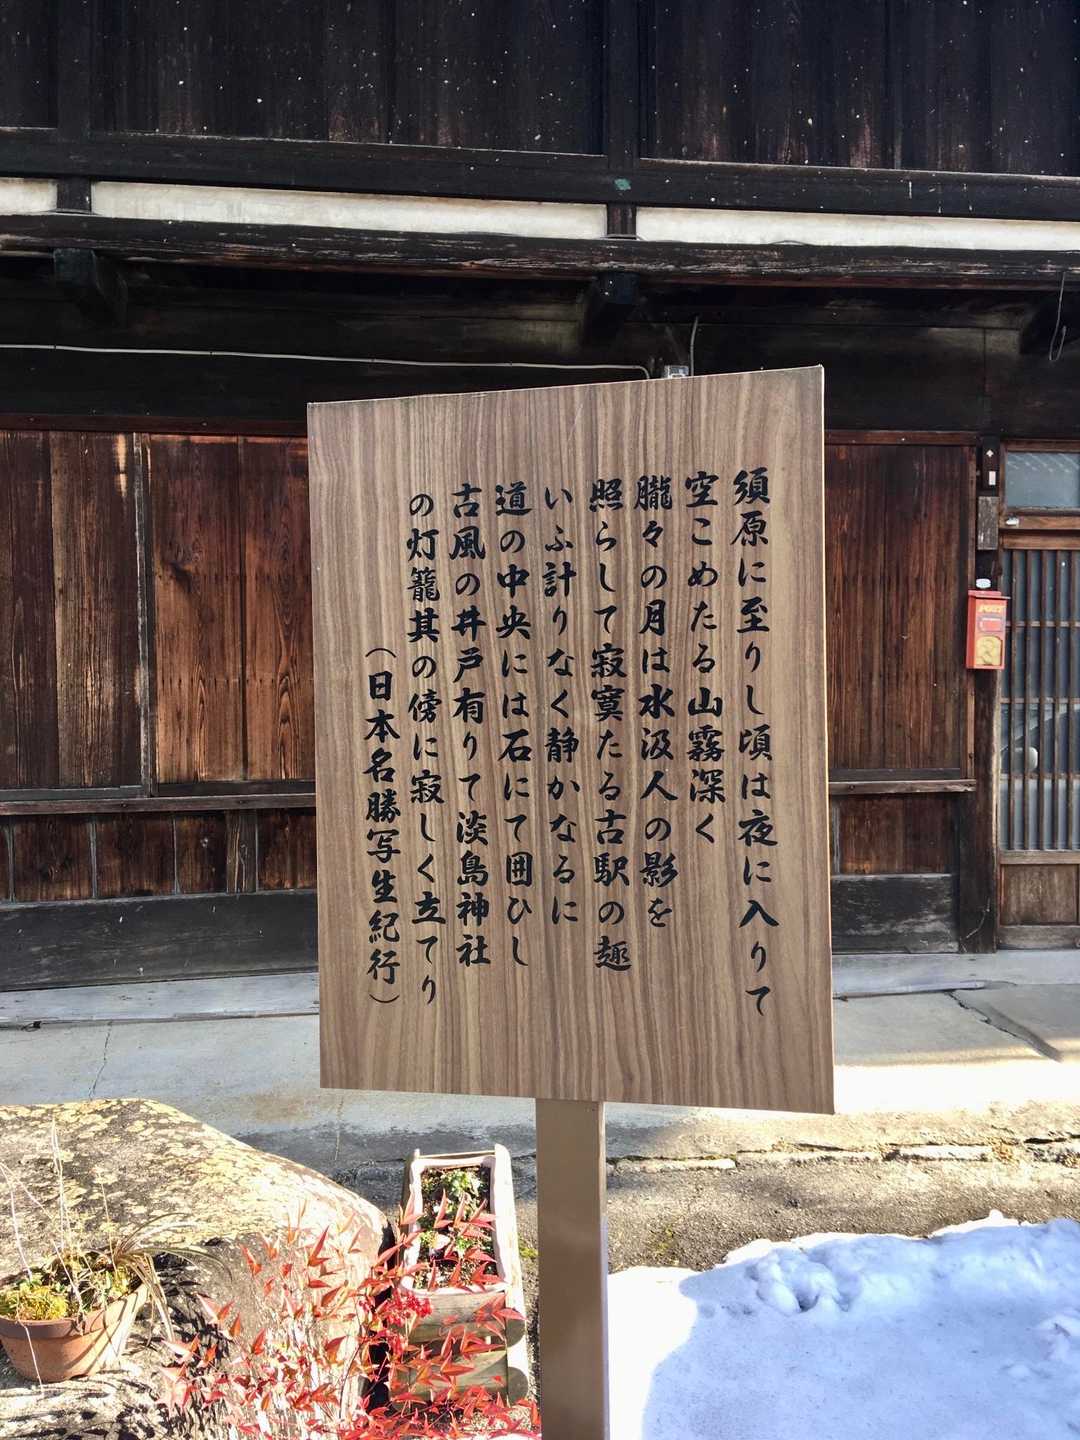 須原に至りし頃は夜に入りて
空こめたる山霧深く
朧々の月は水汲人の影を
照らして寂寞たる古駅の趣
いふ計りなく静かなるに
道の中央には石にて囲ひし
古風の井戸有りて淡島神社
の灯籠其の傍に寂しく立てり
（日本名勝写生紀行）
POST